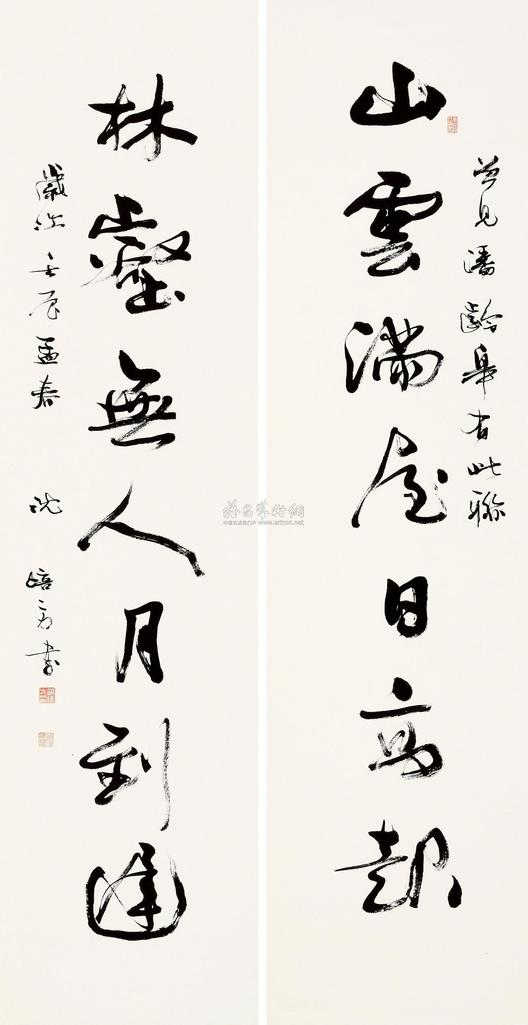 曾見潘齡皋有此聯
山雲滿屋日高起
林壑無人月到遲
歲次壬辰孟春 沈培方書
www.artron.net